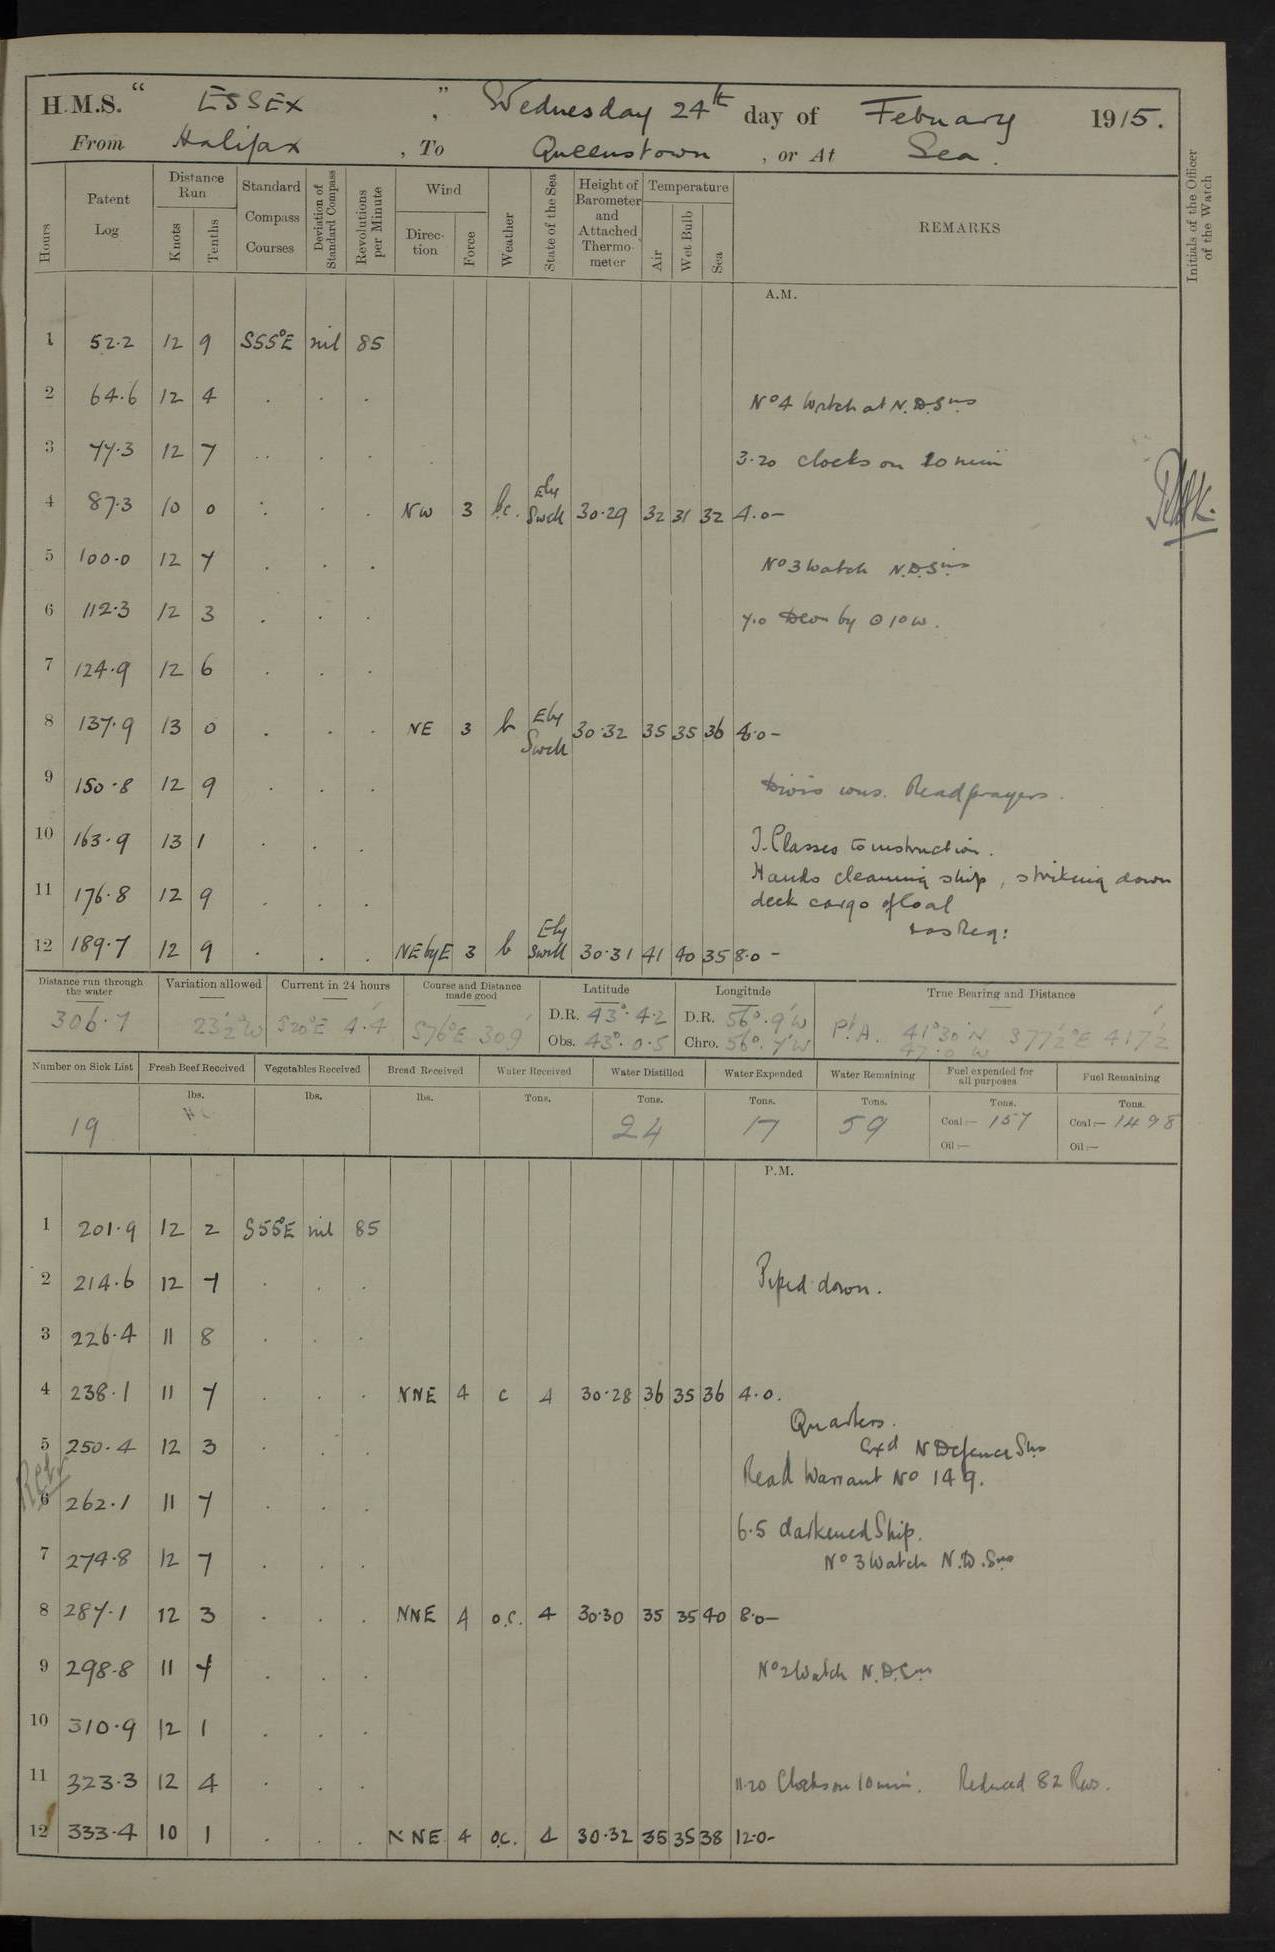 H.M.S. " ESSEX ", Wednesday 24th day of Febuary 1915.
From Halifax, To Queenstown, or At Sea.
Hours Patent Log Distance Run Knots Tenths Standard Compass Courses Deviation of Standard Compass Revolutions per Minute Wind Direction Force Weather State of the Sea Height of Barometer and Attached Thermometer Temperature Air Wet Bulb Sea REMARKS Initials of the Officer of the Watch
A.M.
1 52.2 12 9 S55°E nil 85
2 64.6 12 4 . . . No 4 Watch at N.D.Stns
3 77.3 12 7 .. . . 3.20 clocks on 10 min
4 87.3 10 0 : . . NW 3 b.c. Ely Swell 30.29 32 31 32 4.0-
5 100.0 12 7 . . . No 3 Watch N.D.Stns
6 112.3 12 3 . . . 7.0 Devn by ⊙ 1° W.
7 124.9 12 6 . . .
8 137.9 13 0 . . . NE 3 b Ely Swell 30.32 35 35 36 8.0-
9 150.8 12 9 . . . Divisions. Read prayers.
10 163.9 13 1 . . . T. Classes to instruction.
Hands cleaning ship, striking down
11 176.8 12 9 . . . deck cargo of Coal
as Req:
12 189.7 12 9 . . . NE by E 3 b Ely Swell 30.31 41 40 35 8.0-
Distance run through the water Variation allowed Current in 24 hours Course and Distance made good Latitude Longitude True Bearing and Distance
306.7 23½°W S20°E 4.4 S76°E 309' D.R. 43°.4.2 Obs. 43°.0.5 D.R. 56°.9'W Chro. 56°.7'W Pt A. 41°30'N 47.0 W S77½°E 417½
Number on Sick List Fresh Beef Received Vegetables Received Bread Received Water Received Water Distilled Water Expended Water Remaining Fuel expended for all purposes Fuel Remaining
lbs. lbs. lbs. Tons. Tons. Tons. Tons. Tons. Tons.
19 24 17 59 Coal:- 157 Coal:- 1498
Oil:- Oil:-
P.M.
1 201.9 12 2 S55°E nil 85
2 214.6 12 7 . . . Piped down.
3 226.4 11 8 . . .
4 238.1 11 7 . . . NNE 4 c 4 30.28 36 35 36 4.0.
Quarters.
5 250.4 12 3 . . . Exd N Defence Stns
Read Warrant No 149.
6 262.1 11 7 . . .
6.5 darkened Ship.
7 274.8 12 7 . . . No 3 Watch N.D.Stns
8 287.1 12 3 . . . NNE 4 o.c. 4 30.30 35 35 40 8.0-
9 298.8 11 7 . . . No 2 Watch N.D.Stns
10 310.9 12 1 . . .
11 323.3 12 4 . . . 11.20 Clocks on 10 min. Reduced 82 Revs.
12 333.4 10 1 . . . NNE 4 o.c. 4 30.32 35 35 38 12.0-